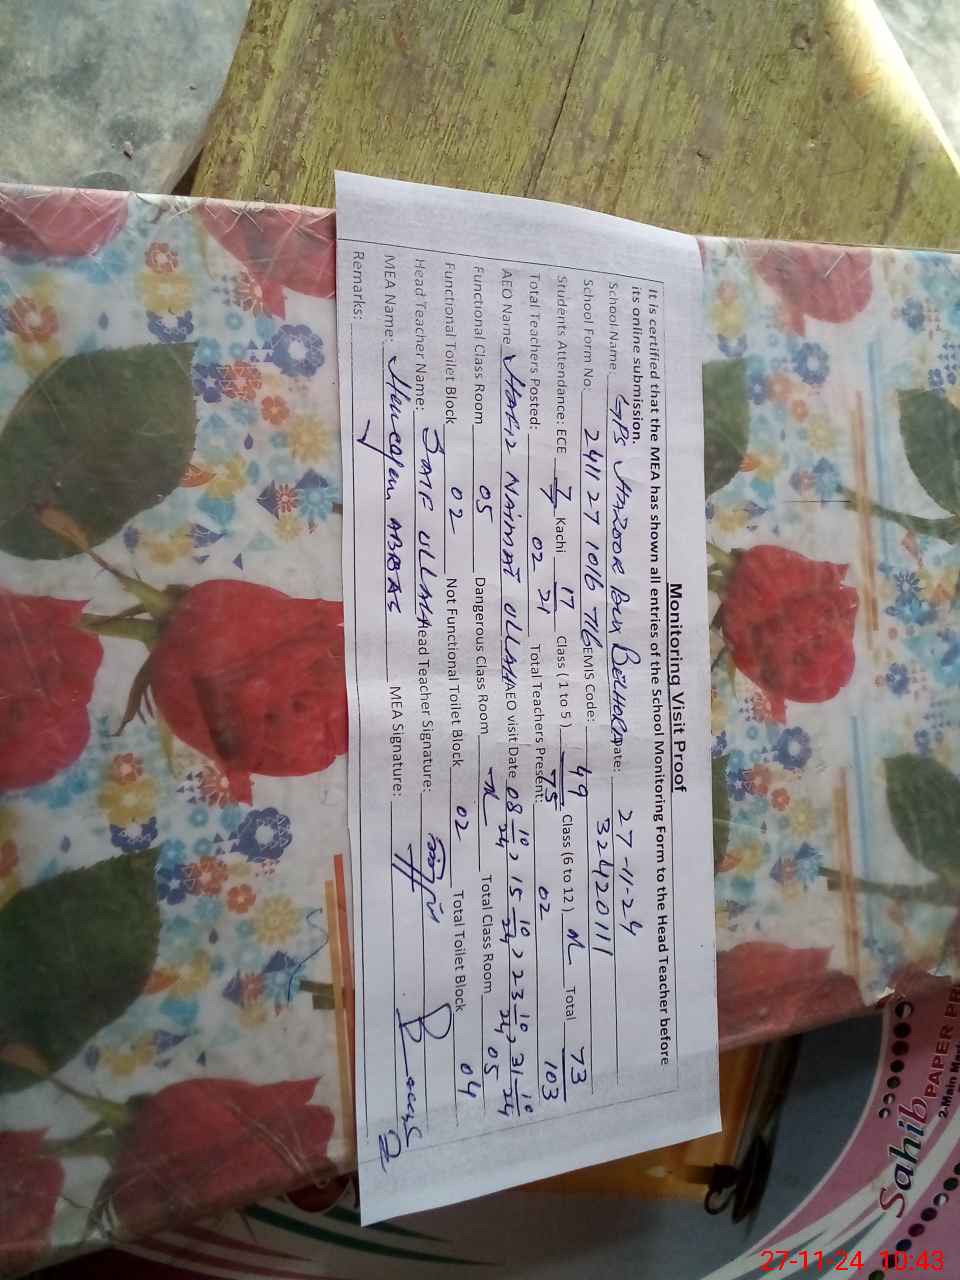 Monitoring Visit Proof
It is certified that the MEA has shown all entries of the School Monitoring Form to the Head Teacher before
its online submission.
School Name: GPS HAZOOR BUX BELHORA Date: 27-11-24
School Form No: 2411271016716 EMIS Code: 32420111
Students Attendance: ECE 7/7 Kachi 17/21 Class ( 1 to 5 ) 49/75 Class (6 to 12 ) Total 73/103
Total Teachers Posted: 02 Total Teachers Present: 02
AEO Name HAFIZ NAIMAT ULLAH AEO visit Date 08 10/24, 15 10/24, 23 10/24, 31 10/24
Functional Class Room 05 Dangerous Class Room Total Class Room 05
Functional Toilet Block 02 Not Functional Toilet Block 02 Total Toilet Block 04
Head Teacher Name: SAIF ULLAH Head Teacher Signature:
MEA Name: ABBAS MEA Signature:
Remarks:
Sahib
PAPER PR
2-Main Ma
27-11-24 10:43